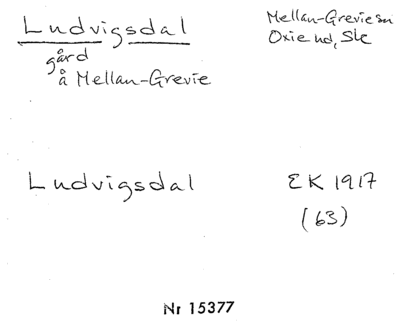 Ludvigsdal
gård
å Mellan-Grevie
Mellan-Grevie sn
Oxie hd, Sk
Ludvigsdal
EK 1917
(63)
Nr 15377